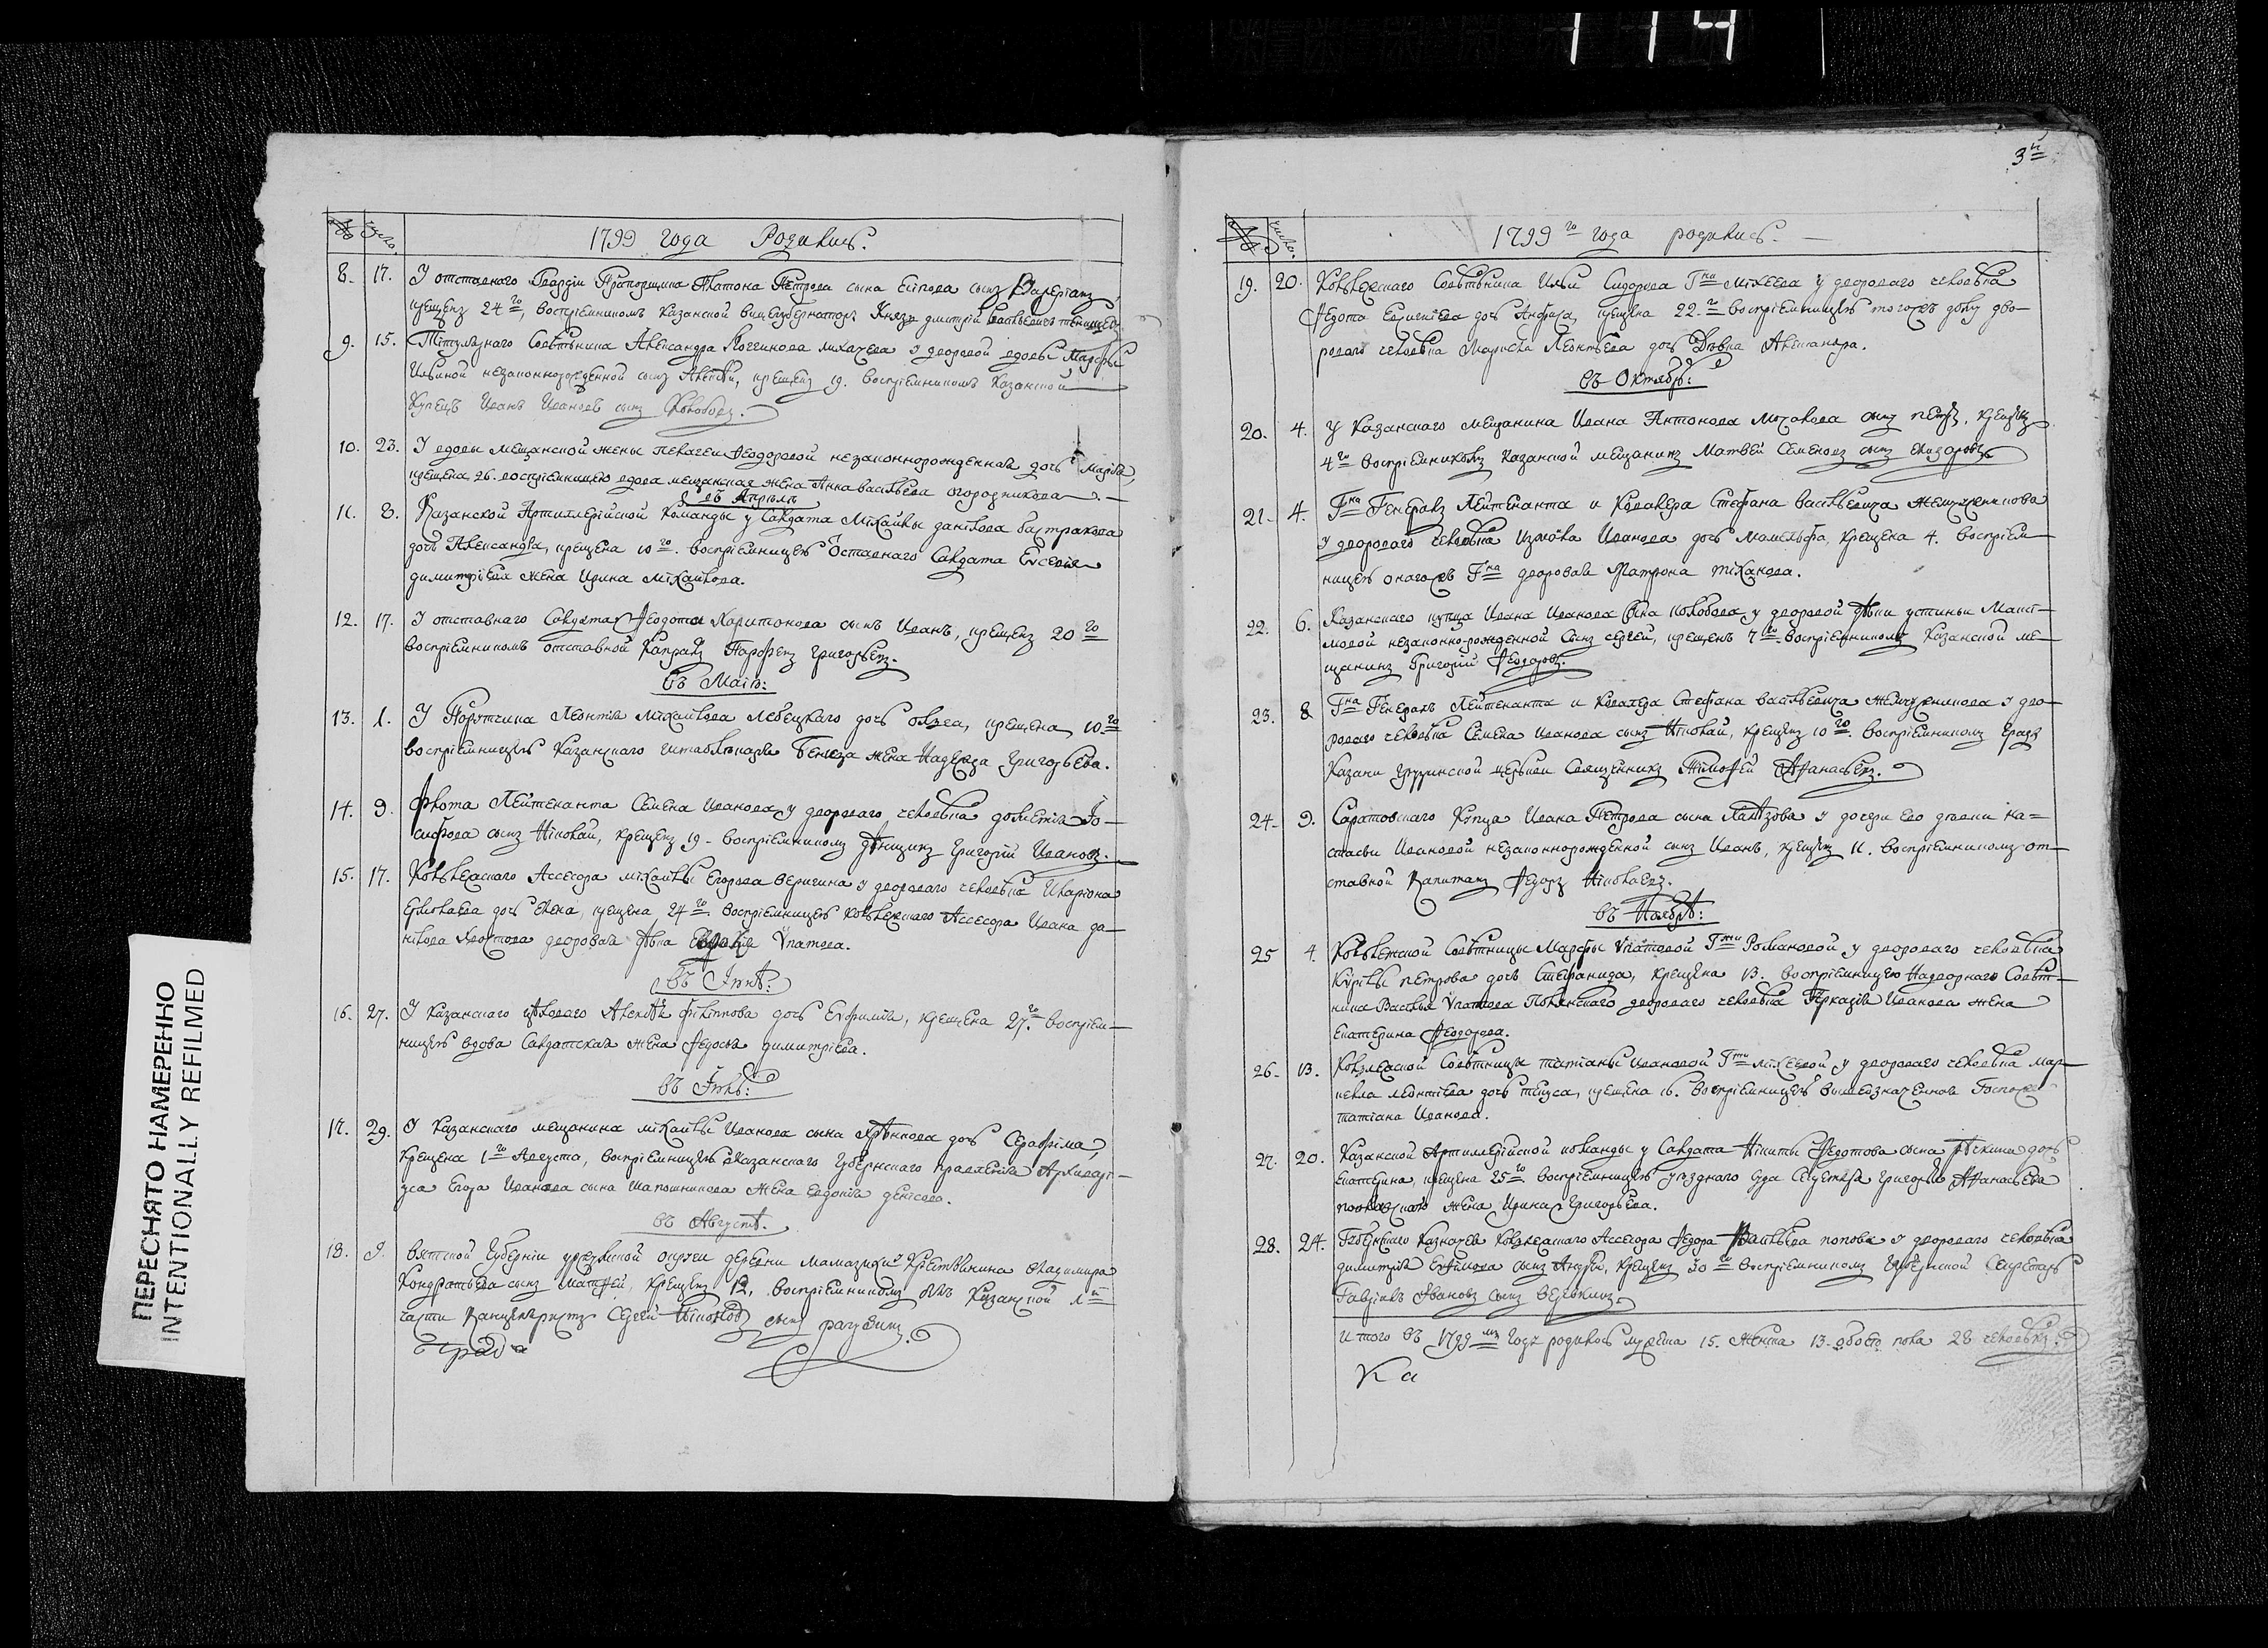 114
ПЕРЕСНЯТО НАМЕРЕННО
INTENTIONALLY REFILMED
1799 года Родились.
8. 17. У отставнаго Гвардiи Прапорщика Платона Петрова сына Есипова сынъ Валерiанъ,
крещенъ 24го, воспрiемникомъ Казанской вицегубернаторъ Князь дмитрiй Васильевичь
9. 15. Тiтулярнаго Совѣтника Александра Логгинова лихачева у дворовой вдовы Марфы
Ильиной незаконнорожденной сынъ Алексѣй, крещенъ 19. воспрiемникомъ Казанской
Купецъ Иванъ Ивановъ сынъ
10. 23. У вдовы мещанской жены Пелагеи Ѳеодоровой незаконнорожденная дочь Марiя,
крещена 26. воспрiемницею вдова мещанская жена Анна васильева огородникова.
въ Апрѣлѣ
11. 8. Казанской Артиллерiйской Команды у Салдата Мiхайлы данiлова бастракова
дочь Александра, крещена 10го. воспрiемницею Отставнаго Салдата Евсевiя
димитрiева жена Ирина мiхайлова.
12. 17. У отставнаго Салдата Ѳеодота Харитонова сынъ Иванъ, крещенъ 20го
воспрiемникомъ отставной Капралъ Парѳенъ Григорьевъ.
въ Маiѣ:
13. 1. У Порутчика Леонтiя мiхайлова Лебецкаго дочь ольга, крещена 10го
воспрiемницею Казанскаго штаблѣкаря жена Надежда Григорьева.
14. 9. Флота Лейтенанта Семена Иванова у двороваго человѣка Iо-
сифова сынъ Нiколай, крещенъ 19. воспрiемникомъ Григорiй Ивановъ.
15. 17. Коллежскаго Ассесора мiхайлы Егорова Веригина у двороваго человѣка Илларiона
Ермолаева дочь Елена, крещена 24го. воспрiемницею Коллежскаго Ассесора Ивана да-
нiлова дворовая дѣвка Vпатева.
въ Iюнѣ:
16. 27. У Казанскаго цѣховаго Алексѣя фiлiппова дочь Евфимiя, крещена 27.го воспрiем-
ницею вдова Салдатская жена Ѳедосья димитрiева.
въ Iюлѣ:
17. 29. У Казанскаго мещанина мiхайлы Иванова сына дочь Серафiма,
крещена 1го Августа, воспрiемницею Казанскаго Губернскаго правленiя Архиварi-
уса Егора Иванова сына шапошникова жена Евдокiя денiсова.
въ Августѣ.
18. 9. Вятской Губернiи уржумской округи деревни Крестьянина владимира
Кондратьева сынъ Матѳей, крещенъ 12, воспрiемникомъ Казанской 1й
части Канцеляристъ Сергей сынъ
града
3й
1799го года родились.
19. 20. Коллежскаго Совѣтника Ильи Сидорова Гна Мiхеева у двороваго человѣка
Ѳедота дочь Анфиса, крещена 22.го воспрiемницею тогожъ дому дво-
роваго человѣка Леонтьева дочь Дѣвка Александра.
въ Октябрѣ:
20. 4. У Казанскаго мещанина Ивана Антонова сынъ петръ, крещенъ
4го воспрiемникомъ Казанской мещанинъ Матвей Семеновъ сынъ
21. 4. Гна Генералъ Лейтенанта и Кавалера Стефана васильевича
у двороваго человѣка Иванова дочь Мамельфа, крещена 4. воспрiем-
ницею онагожъ Гна дворовая Матрона
22. 6. Казанскаго купца Ивана Иванова сына у дворовой дѣвки устиньи Макси-
мовой незаконнорожденной сынъ сергей, крещенъ 7го воспрiемникомъ Казанской ме-
щанинъ Григорiй Ѳедоровъ.
23. 8 Гна Генералъ Лейтенанта и Кавалера Стефана васильевича у дво-
роваго человѣка Семена Иванова сынъ Нiколай, крещенъ 10го. воспрiемникомъ Града
Казани Грузинской церькви Священникъ Тiмоѳей Аѳанасьевъ.
24. 9. Саратовскаго Купца Ивана Петрова сына у дочери ево дѣвки На-
стасьи Ивановой незаконнорожденной сынъ Иванъ, крещенъ 11. воспрiемникомъ от-
ставной Капитанъ Ѳедоръ Нiколаевъ.
въ Ноябрѣ:
25 4. Коллежской Совѣтницы Марѳы Vпатовой Гжи Романовой у двороваго человѣка
Кирилы петрова дочь Стефанида, крещена 13. воспрiемницею Надворнаго Совѣт-
ника Василья Vпатова двороваго человѣка Аркадiя Иванова жена
Екатерина Ѳеодорова.
26. 13. Коллежской Совѣтницы татiаны ивановой Гжи Мiхеевой у двороваго человѣка Мар-
келла леонтiева дочь крещена 16. воспрiемницею вышеозначенная Госпожа
татiана Иванова.
27. 20. Казанской Артиллерiйской команды у Салдата Нiкиты Ѳедотова сына дочь
Екатерина, крещена 25го воспрiемницею уѣзднаго суда Секретаря Григорья Аѳанасьева
жена Ирина Григорьева.
28. 24. Губернскаго Казначея Коллежскаго Ассесора Ѳедора Васильева попова у двороваго человѣка
димитрiя Ефимова сынъ Андрей, крещенъ 30го воспрiемникомъ Губернской Секретарь
Гаврiилъ Ивановъ сынъ Веревкинъ.
итого въ 1799мъ Году родилось мужеска 15. женска 13. обоего пола 28 человѣкъ.
Ка